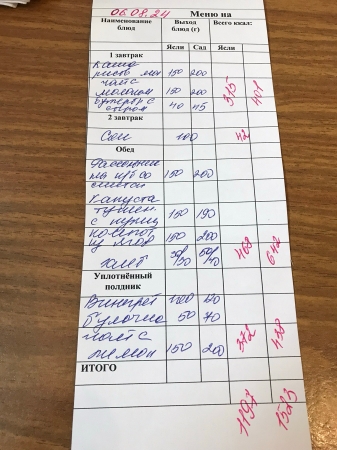 06.08.24 Меню на
Наименование блюд Выход блюд (г) Всего ккал:
Ясли Сад Ясли Сад
1 завтрак
Каша
рисов мол 150 200
чай с
молоком 150 200
бутерб с
сыром 40 45 315 401
2 завтрак
Сок 100 42
Обед
на к/б со 150 200
сметан
Капуста
тушен
с куриц 150 190
компот
150 200
хлеб 30/30 50/40 468 642
Уплотнённый
полдник
Винегрет 100 120
булочка 50 70
чай с 372 438
лимон 150 200
ИТОГО
1197 1523